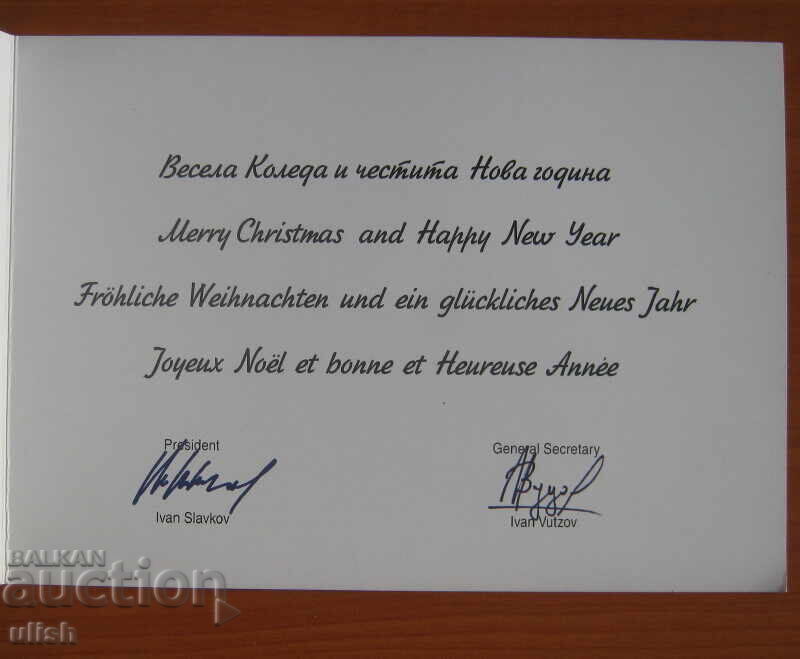 Весела Коледа и честита Нова година
Merry Christmas and Happy New Year
Fröhliche Weihnachten und ein glückliches Neues Jahr
Joyeux Noël et bonne et Heureuse Année
President
General Secretary
Ivan Slavkov
Ivan Vutzov
BALKAN
auction
ulish